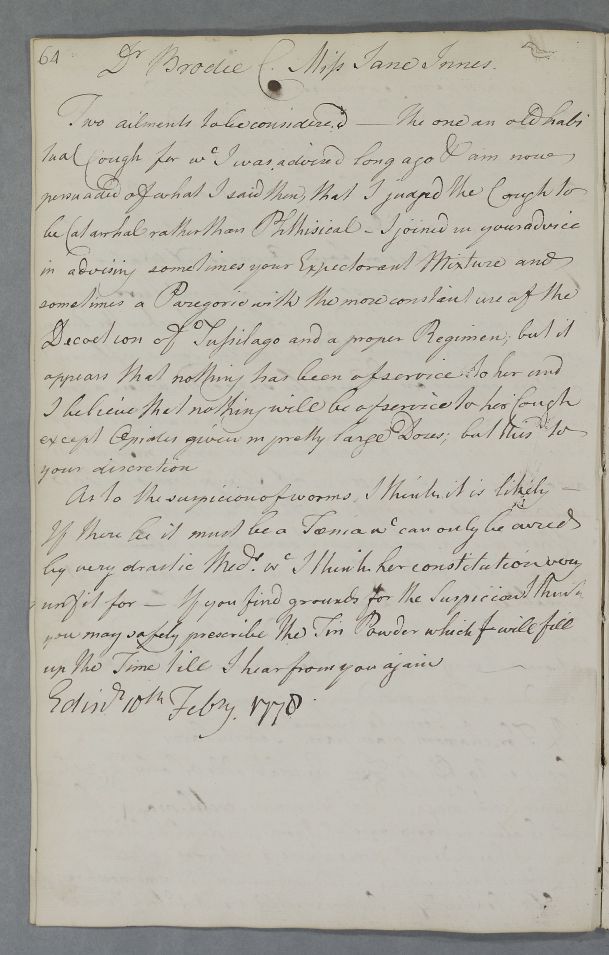 64
Dr Brodie C. Miss Jane Innes.
Two ailments to be considered — The one an old habi
tual Cough for wc I was advised long ago & am now
persuaded of what I said then, that I judged the Cough to
be Catarrhal rather than Phthisical – I joined in your advice
in advising sometimes your Expectorant Mixture and
sometimes a Paregoric with the more constant use of the
Decoction of Tussilago and a proper Regimen; but it
appears that nothing has been of service to her and
I believe that nothing will be of service to her Cough
except Opiates given in pretty large Doses; but this to
your discretion
As to the suspicion of worms, I think it is likely —
If there be it must be a Tænia wc can only be cured
by very drastic Meds. wc I think her constitution very
unfit for — If you find grounds for the Suspicion I think
you may safely prescribe the Tin Powder which I will fill
up the Time till I hear from you again
Edinr. 10th Febry. 1778